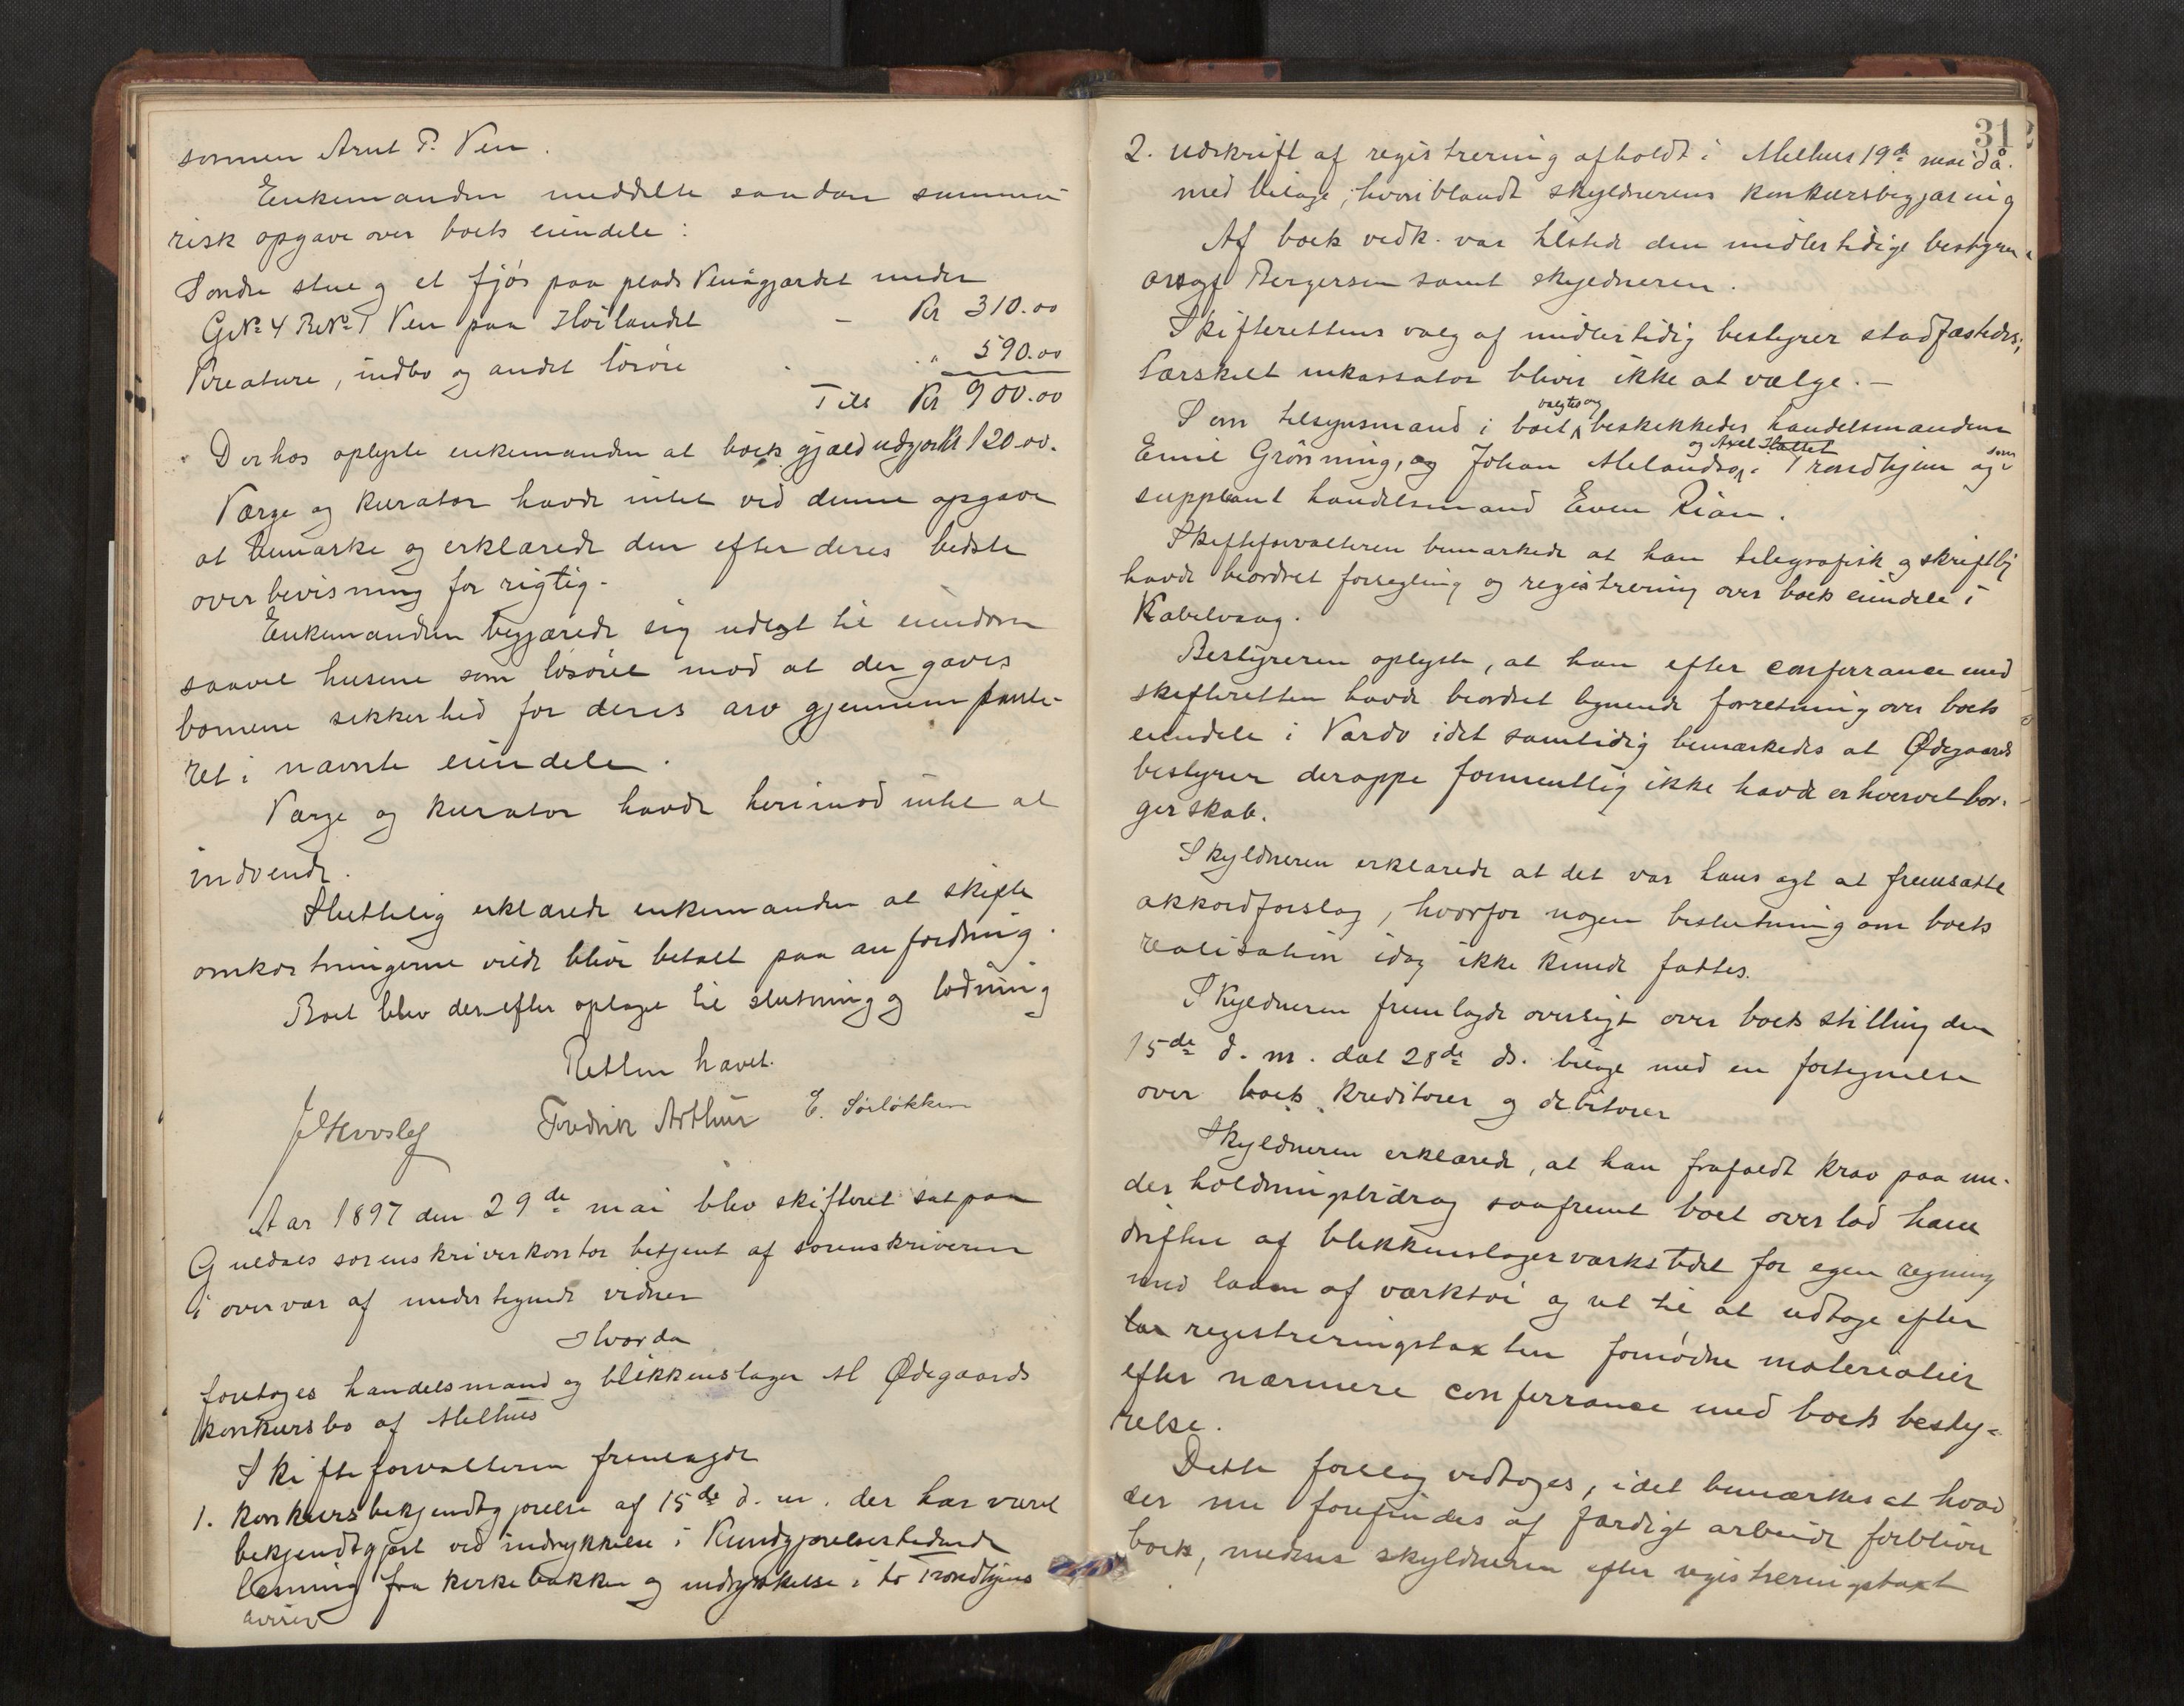 sønnen Arnt P. Ven.
Enkemanden meddelte saadan summa-
risk opgave over boets eiendele:
Søndre stue og et fjøs paa plads Vensgjærdet under
GrNo 4 BrNo 1 Ven paa Høilandet - Kr 310.00
Kreature, indbo og andet løsøre . . " 590.00
Tils Kr 900.00
Derhos oplyste enkemanden at boets gjæld udgjør Kr 120.00.
Værge og kurator havde intet ved denne opgave
at bemærke og erklærede den efter deres bedste
overbevisning for rigtig.
Enkemanden begjærede sig udlagt til eiendom
saavel husene som løsøret mod at der gaves
børnene sikkerhed for deres arv gjennem pante-
ret i nævnte eiendele.
Værge og kurator havde herimod intet at
indvende.
Sluttelig erklærede enkemanden at skifte
omkostningerne vilde blive betalt paa anfordring.
Boet blev derefter optaget til slutning og lodning
Retten hævet.
Fredrik Arthur E. Sørløkken
Aar 1897 den 29de mai blev skifteret sat paa
Guldals sorenskriverkontor betjent af sorenskriveren
i overvær af undertegnede vidner
Hvorda
foretoges handelsmand og blikkenslager M Ødegaards
konkursbo af Melhus
Skifteforvalteren fremlagde
1. Konkursbekjendtgjørelse af 15de d. m. der har været
bekjendtgjort ved indrykkelse i Kundgjørelsestidende
læsning fra kirkebakken og indrykkelse i to Trondhjems
aviser
31
2. Udskrift af registrering afholdt i Melhus 19de mai d å.
med bilage, hvoriblandt skyldnerens konkursbegjæring
Af boets vedk. var tilstede den midlertidige bestyrer
ovsgf Bergersen samt skyldneren.
Skifterettens valg af midlertidig bestyrer stadfæstedes;
Særskilt inkassator bliver ikke at vælge. -
valgtes og
Som tilsynsmand i boet beskikkedes handelsmændene
og Axel Hattet som
Emil Grønning, og Johan Melandsø, i Trondhjem og
suppleant handelsmand Even Rian.
Skifteforvalteren bemærkede at han telegrafisk og skriftlig
havde beordret forsegling og registrering over boets eiendele i
Kabelvaag.
Bestyreren oplyste, at han efter conferrance med
skifteretten havde beordret lignende forretning over boets
eiendele i Vardø idet samtidig bemærkedes at Ødegaards
bestyrer deroppe formentlig ikke havde erhvervet bor-
gerskab.
Skyldneren erklærede at det var hans agt at fremsætte
akkordforslag, hvorfor nogen beslutning om boets
realisation idag ikke kunde fattes.
Skyldneren fremlagde oversigt over boets stilling den
15de d. m. dat 28de ds. bilage med en fortegnelse
over boets kreditorer og debitorer
Skyldneren erklærede, at han frafaldt krav paa un-
derholdningsbidrag saafremt boet overlod ham
driften af blikkenslagerværkstedet for egen regning
med laaen af værktøi og ret til at udtage efter
tax registreringstaxten fornødne materialier
efter nærmere conferrance med boets besty-
relse.
Dette forslag vedtoges, idet bemærkes at hvad
der nu forefindes af færdigt arbeide forbliver
boets, medens skyldneren efter registreringstaxt